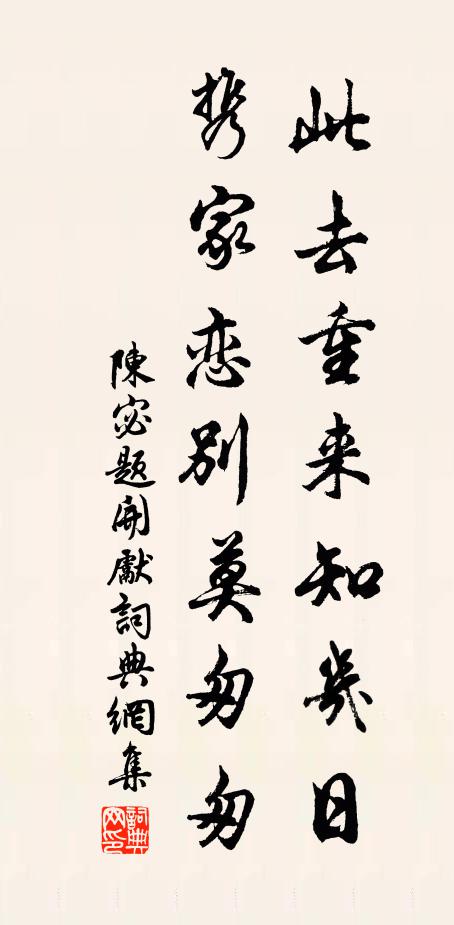 此去重来知幾日
携家恋別莫匆匆
陳宓題開獻詞典網集
詞典網印